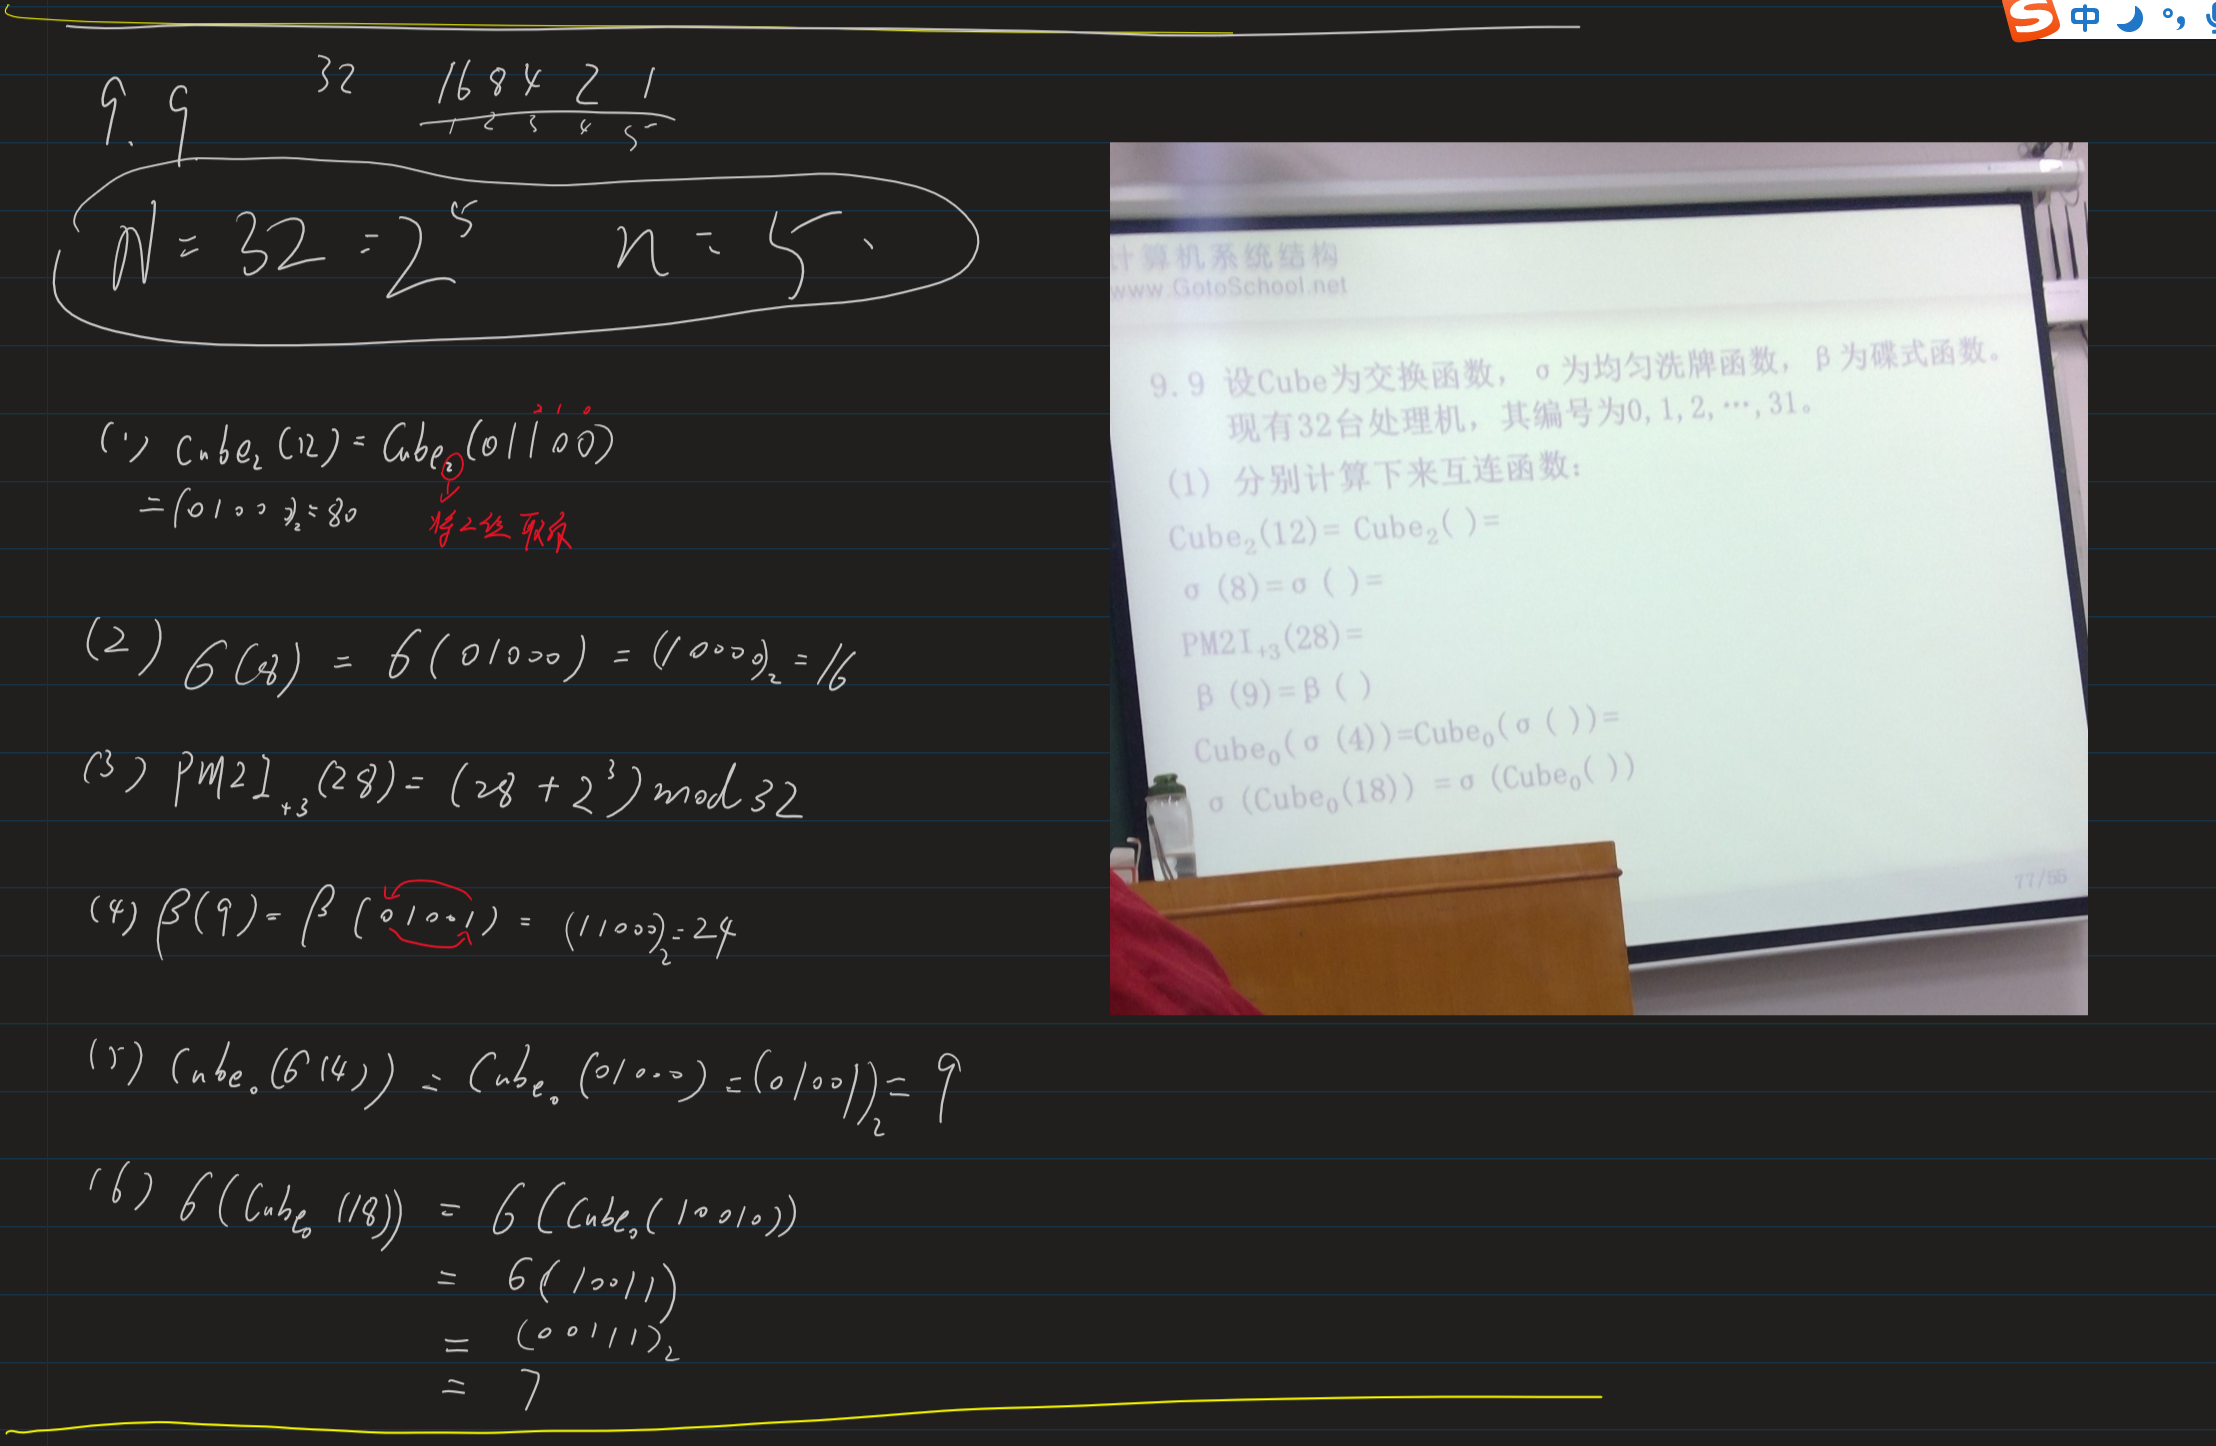 中
9.9 32 16 8 4 2 1
1 2 3 4 5
N = 32 = 2^5 n = 5.
2 1 0
(1) Cube₂(12) = Cube₂(01100)
= (01000)₂ = 80
将2位取反
(2) 6(8) = 6(01000) = (10000)₂ = 16
(3) PM2I₊₃(28) = (28 + 2³) mod 32
(4) β(9) = β(01001) = (11000)₂ = 24
(5) Cube₀(6(4)) = Cube₀(01000) = (01001)₂ = 9
(6) 6(Cube₀(18)) = 6(Cube₀(10010))
= 6(10011)
= (00111)₂
= 7
计算机系统结构
www.GotoSchool.net
9.9 设Cube为交换函数，σ为均匀洗牌函数，β为碟式函数。
现有32台处理机，其编号为0,1,2,…,31。
(1) 分别计算下来互连函数：
Cube₂(12)= Cube₂( )=
σ (8)=σ ( )=
PM2I₊₃(28)=
β (9)=β ( )
Cube₀(σ (4))=Cube₀(σ ( ))=
σ (Cube₀(18)) =σ (Cube₀( ))
77/55